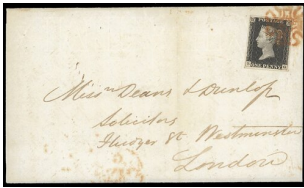 POSTAGE
ONE PENNY
Deans & Dunlop
Solicitors
St. Westminster
London